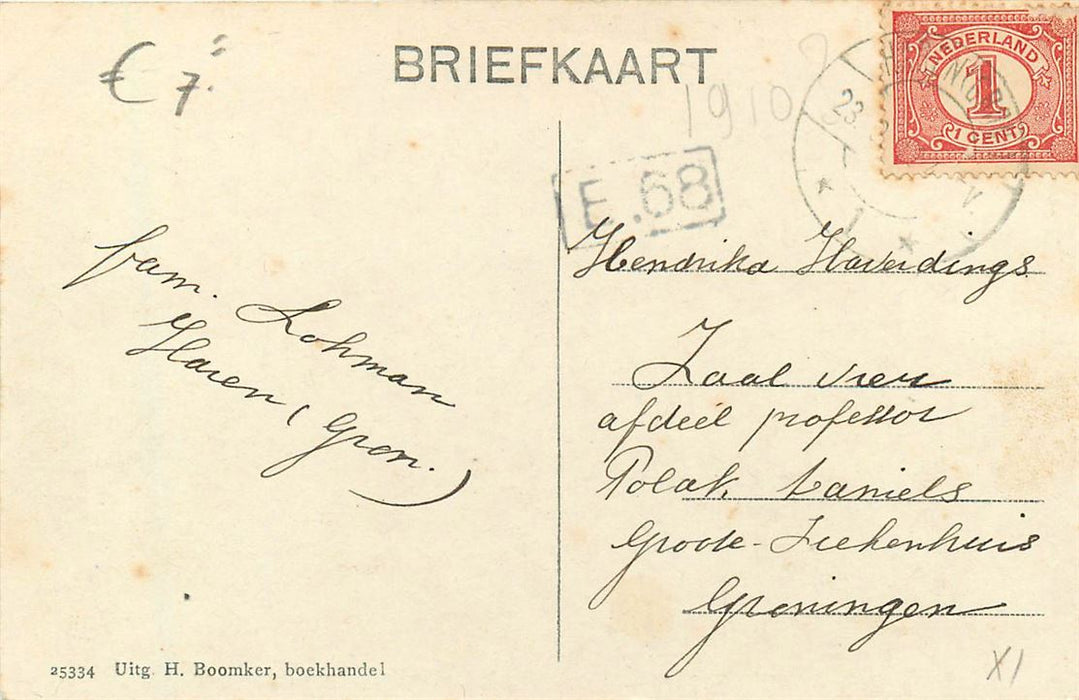 € 7.
BRIEFKAART
1910
NEDERLAND
1
1 CENT
23.
E.68
fam. Lohman
Haren (Gron.)
Hendrika Haverdings
Zaal vier
afdeel professor
Polak Daniels
Groote-Ziekenhuis
Groningen
25334 Uitg. H. Boomker, boekhandel
XI